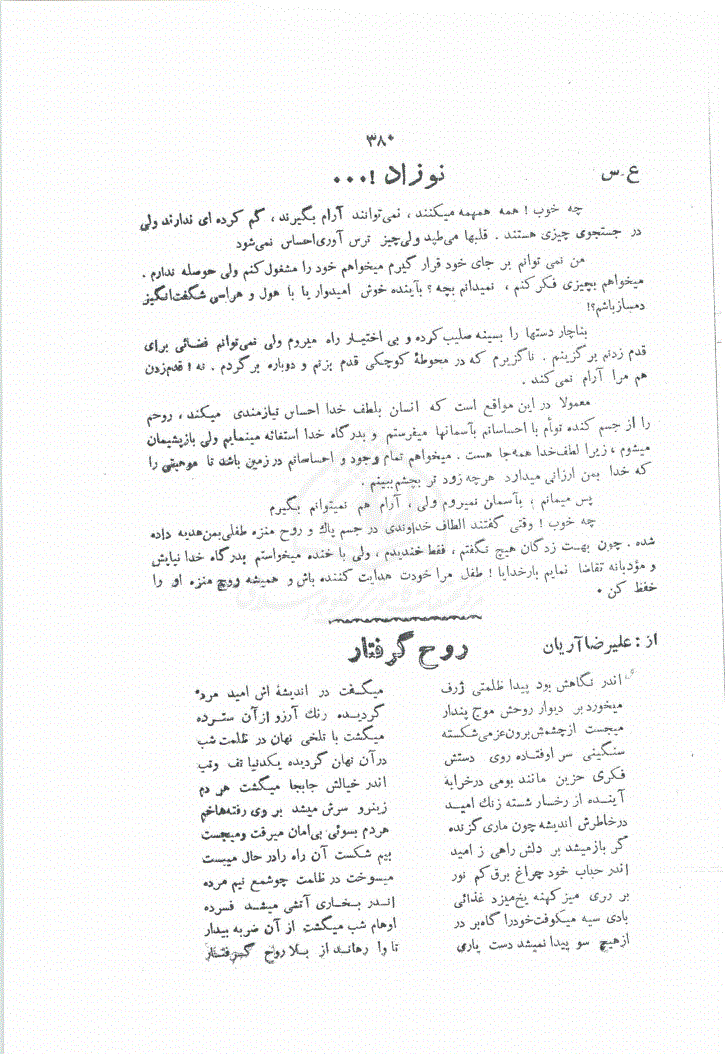 ۳۸۰
ع.س
نوزاد !...
چه خوب ! همه همهمه میکنند ، نمی‌توانند آرام بگیرند ، گم کرده ای ندارند ولی
در جستجوی چیزی هستند . قلبها می‌طپد ولی‌چیز ترس آوری احساس نمی‌شود
من نمی توانم بر جای خود قرار گیرم میخواهم خود را مشغول کنم ولی حوصله ندارم .
میخواهم بچیزی فکر کنم ، نمیدانم بچه ؟ بآینده خوش امیدوار یا با هول و هراسی شگفت‌انگیز
دمساز باشم؟!
بناچار دستها را بسینه صلیب کرده و بی اختیار راه میروم ولی نمی‌توانم فضائی برای
قدم زدنم برگزینم . ناگزیرم که در محوطهٔ کوچکی قدم بزنم و دوباره برگردم . نه ! قدم‌زدن
هم مرا آرام نمی‌کند .
معمولا در این مواقع است که انسان بلطف خدا احساس نیازمندی میکند ، روحم
را از جسم کنده توأم با احساساتم بآسمانها میفرستم و بدرگاه خدا استغاثه مینمایم ولی باز پشیمان
میشوم ، زیرا لطف‌خدا همه‌جا هست . میخواهم تمام وجود و احساساتم در زمین باشد تا موهبتی را
که خدا بمن ارزانی میدارد هرچه زود تر بچشم ببینم .
پس میمانم ، بآسمان نمیروم ولی ، آرام هم نمیتوانم بگیرم
چه خوب ! وقتی گفتند الطاف خداوندی در جسم پاك و روح منزه طفلی بمن هدیه داده
شده . چون بهت زدگان هیچ نگفتم ، فقط خندیدم ، ولی با خنده میخواستم بدرگاه خدا نیایش
و مؤدبانه تقاضا نمایم بارخدایا ! طفل مرا خودت هدایت کننده باش و همیشه روح منزه او را
حفظ کن .
از : علیرضا آریان
روح گرفتار
اندر نگاهش بود پیدا ظلمتی ژرف
میگفت در اندیشهٔ اش امید مرده
میخورد بر دیوار روحش موج پندار
گردیده رنك آرزو از آن سترده
میجست از چشمش برون عزمی شکسته
میگشت با تلخی نهان در ظلمت شب
سنگینی سر اوفتاده روی دستش
در آن نهان گردیده یکدنیا تف و تب
فکری حزین مانند بومی در خرابه
اندر خیالش جابجا میگشت هر دم
آینده از رخسار شسته زنك امید
زینرو سرش میشد بروی رفته‌ها خم
در خاطرش اندیشه چون ماری گزنده
هردم بسوئی بی‌امان میرفت و میجست
گر باز میشد بر دلش راهی ز امید
بیم شکست آن راه را در حال میبست
اندر حباب خود چراغ برق کم نور
میسوخت در ظلمت چو شمع نیم مرده
بر روی میز کهنه یخ میزد غذائی
اندر بخاری آتشی میشد فسرده
بادی سیه میکوفت خود را گاه بر در
اوهام شب میگشت از آن ضربه بیدار
از هیچ سو پیدا نمیشد دست یاری
تا وا رهاند از بلا روح گرفتار